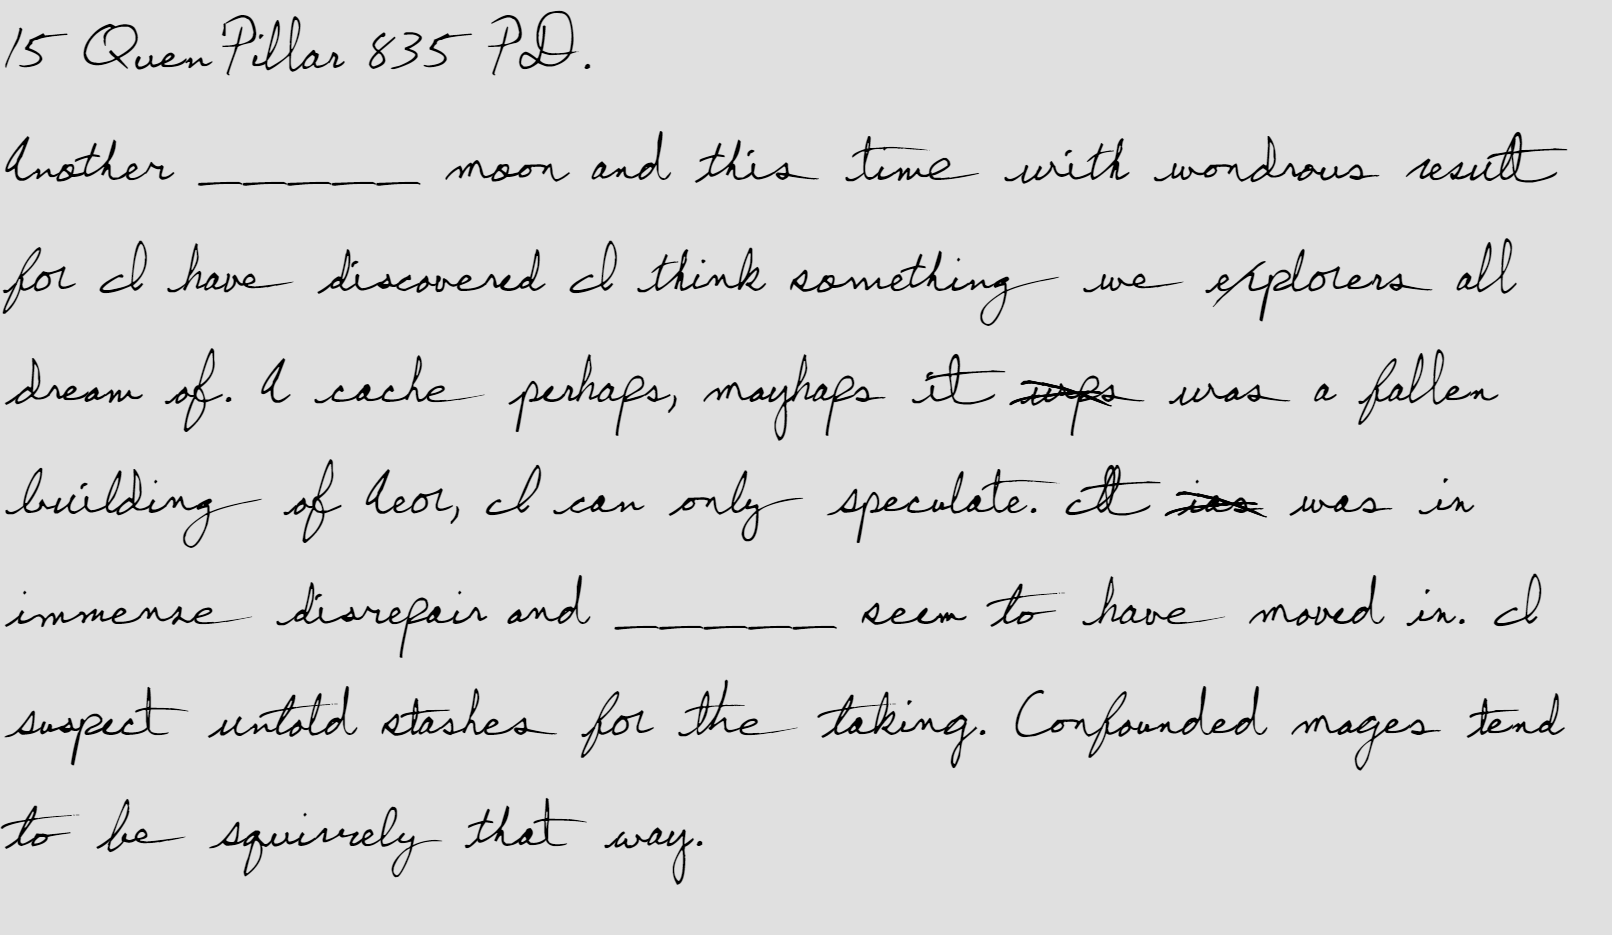 15 Quen Pillar 835 P.D.
Another _____ moon and this time with wondrous result
for I have discovered I think something we explorers all
dream of. A cache perhaps, mayhaps it was a fallen
building of Aeor, I can only speculate. It was in
immense disrepair and _____ seem to have moved in. I
suspect untold stashes for the taking. Confounded mages tend
to be squirrely that way.